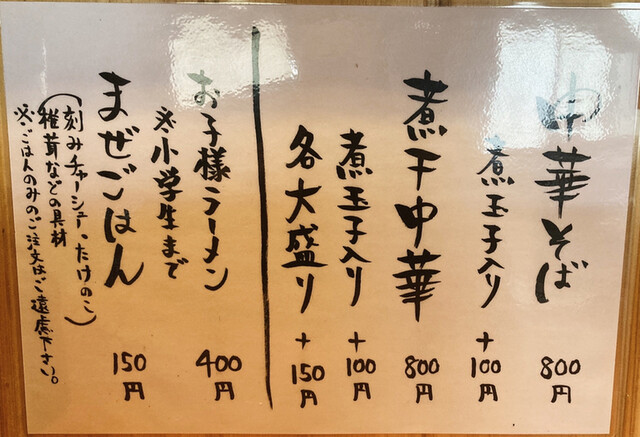 中華そば 800円
煮玉子入り +100円
煮干中華 800円
煮玉子入り +100円
各大盛り +150円
お子様ラーメン 400円
※小学生まで
まぜごはん 150円
(刻みチャーシュー、たけのこ
椎茸などの具材)
※ごはんのみのご注文はご遠慮下さい。